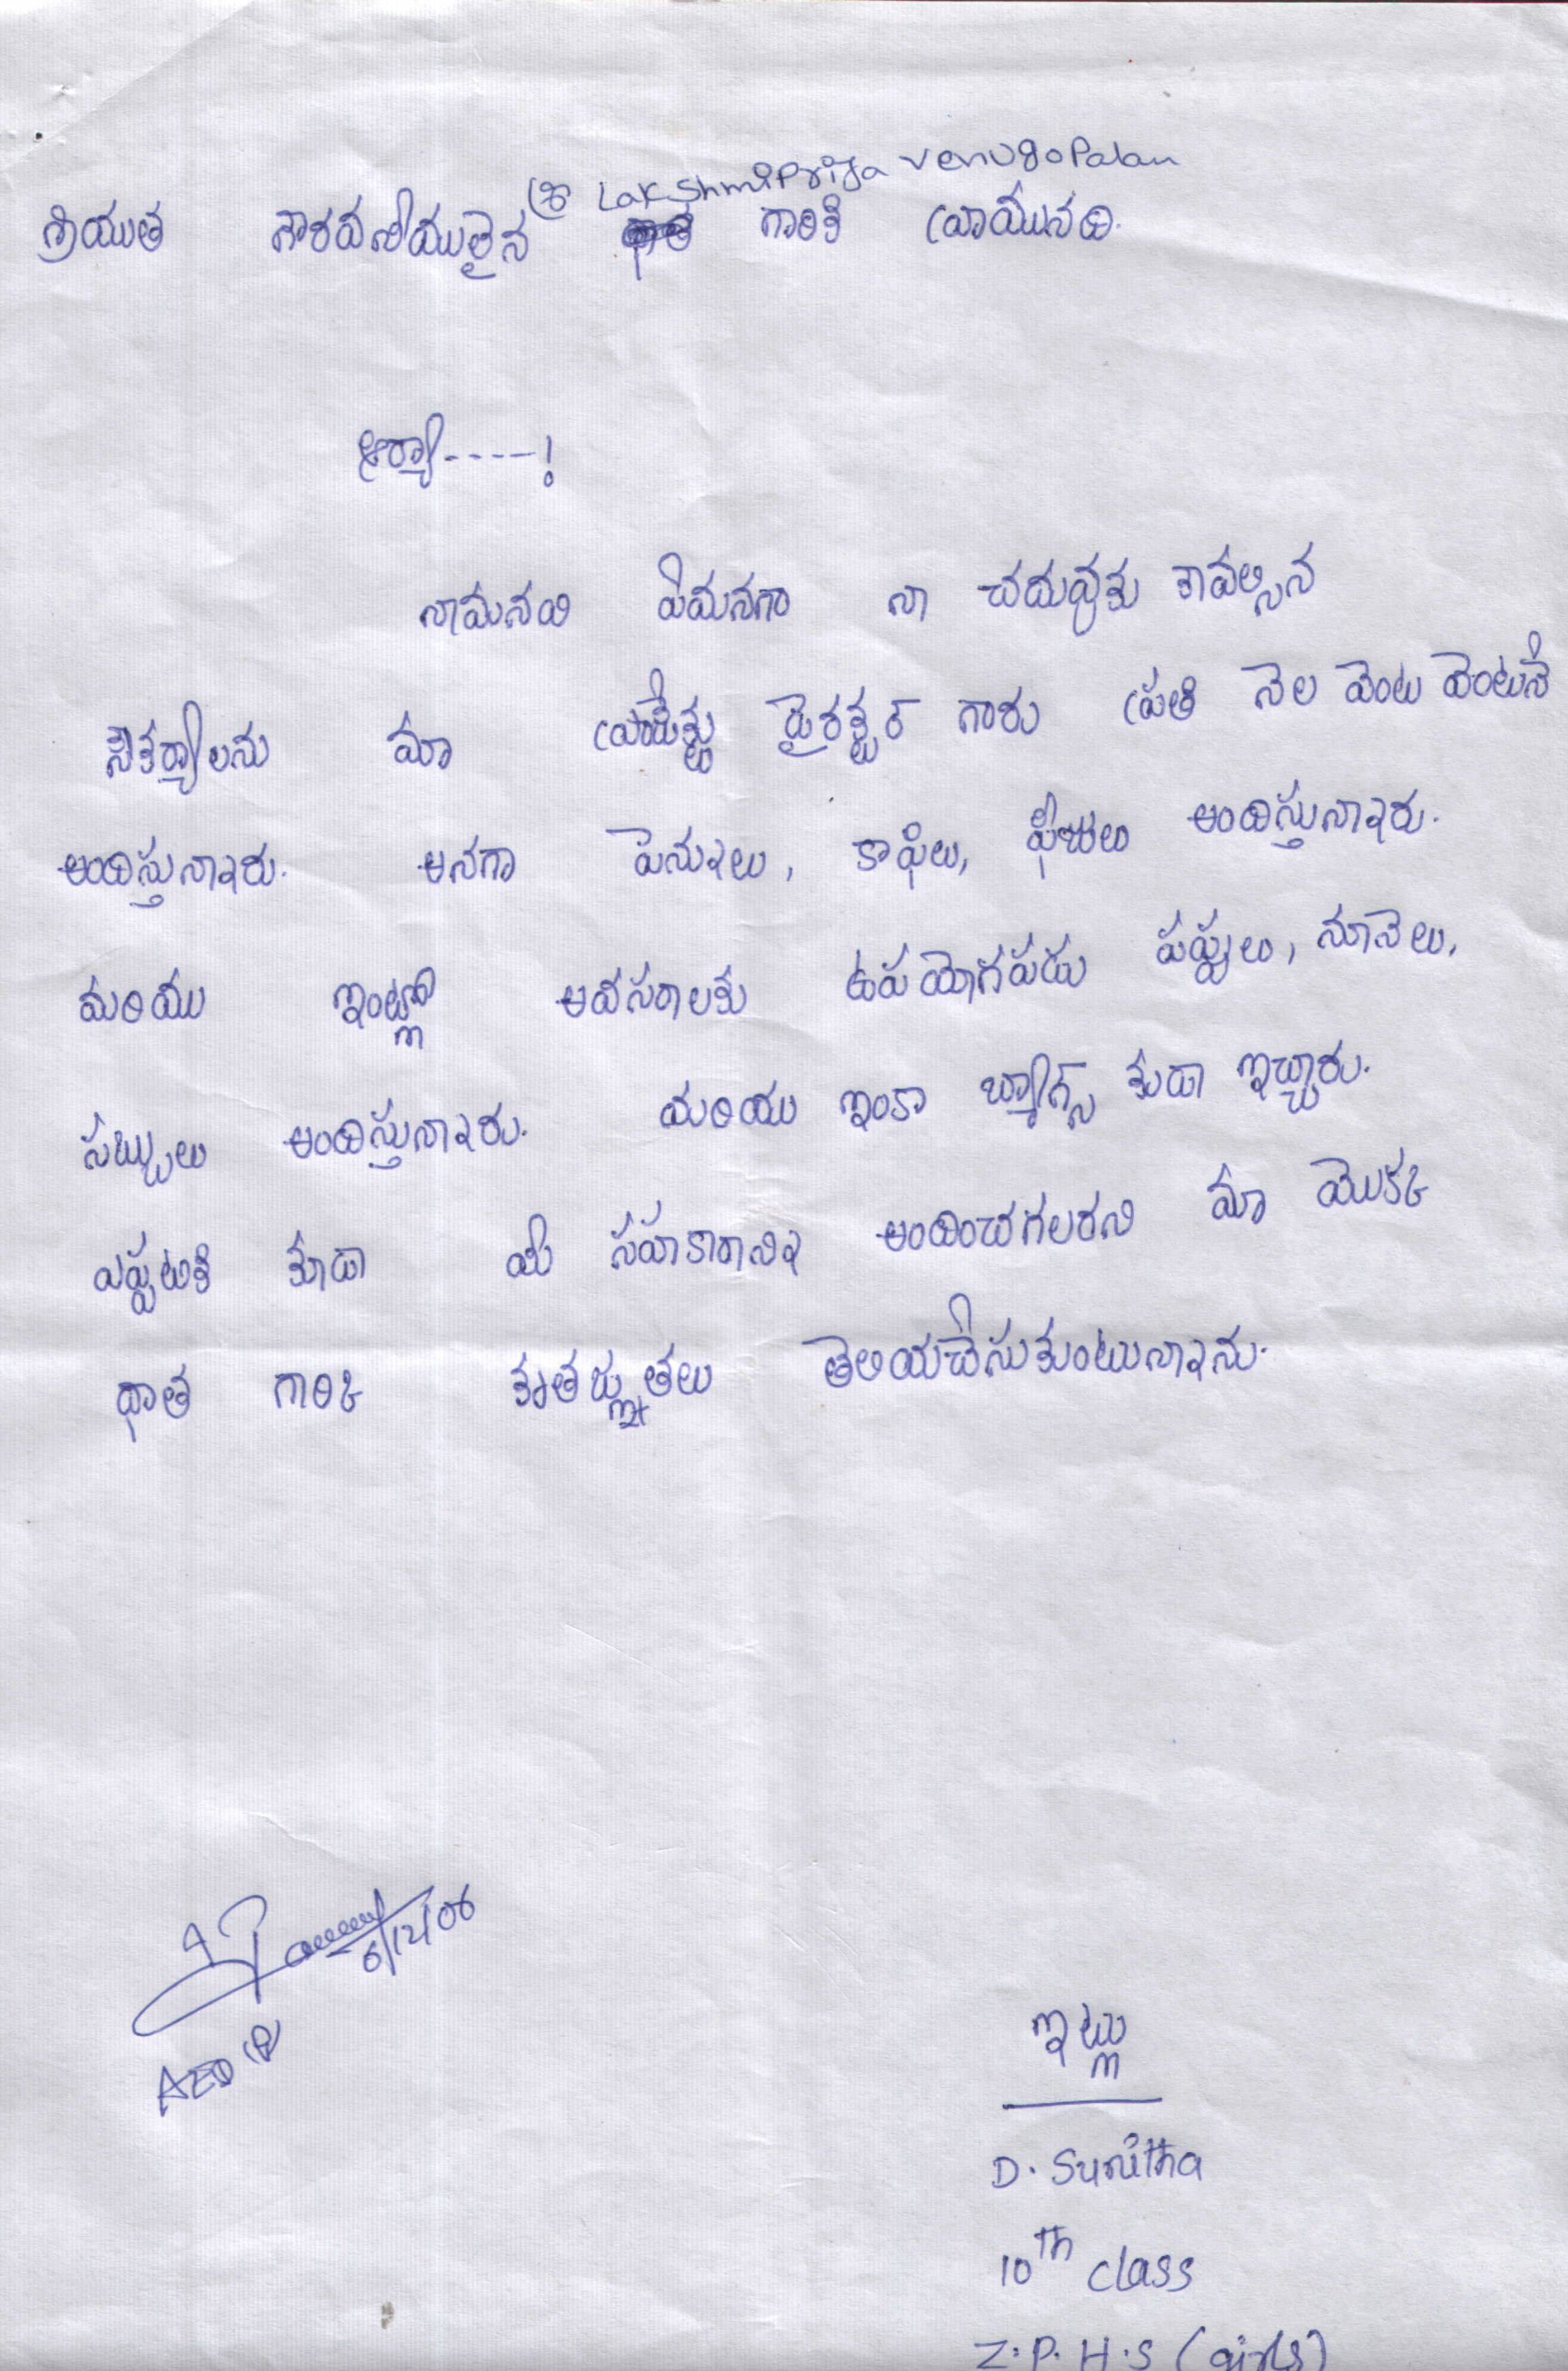 శ్రీ LakshmiPriya venugopalan
శ్రీయుత గౌరవణీయులైన గారికి వ్రాయునది.
ఆర్యా-----!
నామనవి ఏమనగా నా చదువుకు కావల్సిన
సౌకర్యాలను మా ప్రాజెక్టు డైరక్టర్ గారు ప్రతి నెల వెంటు వెంటునే
అందిస్తునారు. అనగా పెనులు, కాపీలు, ఫీజులు అందిస్తునారు.
మరియు ఇంట్లో అవసరాలకు ఉపయోగపడు పప్పులు, నూనెలు,
సబ్బులు అందిస్తునారు. మరియు ఇంకా బ్యాగ్స్ కుడా ఇచ్చారు.
ఎప్పటికి కూడా మీ సహకారాని అందించగలరని మా యొక్క
ధాత గారికి కృతజ్ఞతలు తెలియచేసుకుంటునాను.
6/12/06
ఇట్లు
D. Sunitha
10th class
Z.P.H.S (girls)